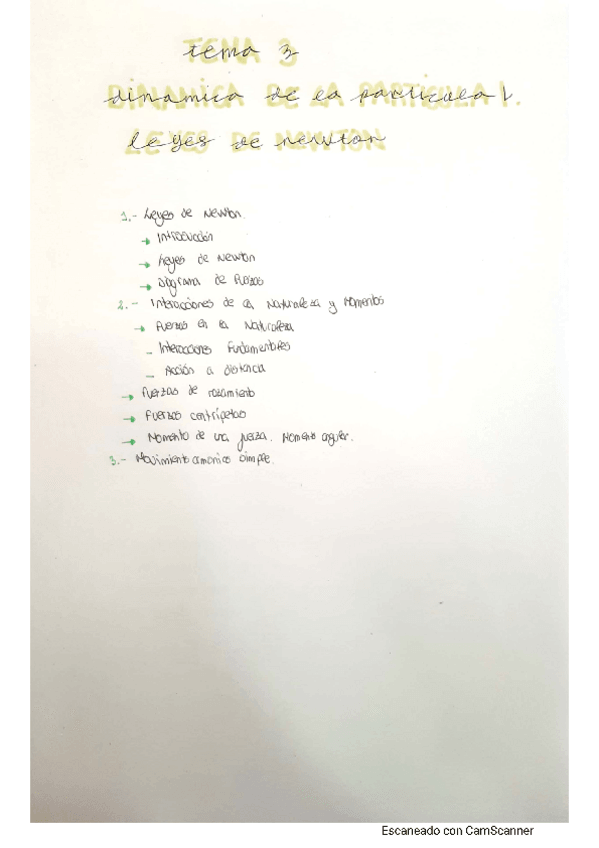 tema 3
dinamica de la particula I.
leyes de newton
1.- Leyes de Newton.
→ Introducción
→ Leyes de Newton
→ Diagrama de fuerzas
2.- Interacciones de la Naturaleza y Momentos
→ Fuerzas en la Naturaleza
- Interacciones Fundamentales
- Acción a distancia
→ Fuerzas de rozamiento
→ Fuerzas centrípetas
→ Momento de una fuerza. Momento angular.
3.- Movimiento armonico simple.
Escaneado con CamScanner